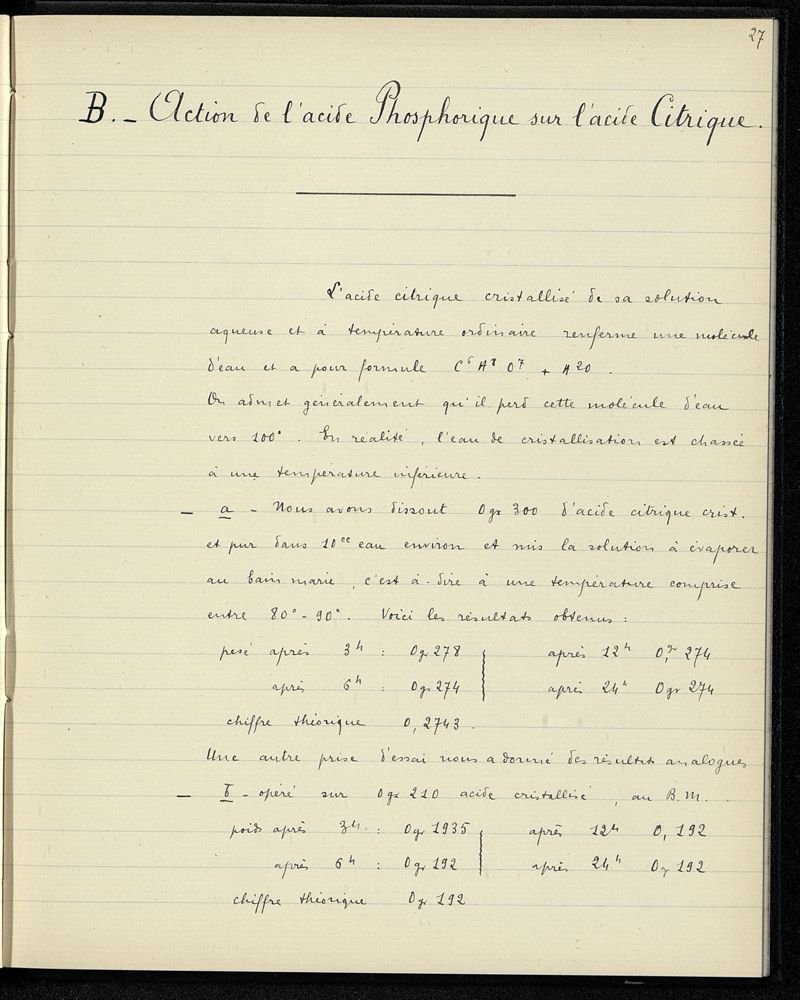 27
B. – Action de l'acide Phosphorique sur l'acide Citrique.
L'acide citrique cristallisé de sa solution
aqueuse et à température ordinaire renferme une molécule
d'eau et a pour formule C⁶H⁸O⁷ + H²O.
On admet généralement qu'il perd cette molécule d'eau
vers 100°. En réalité, l'eau de cristallisation est chassée
à une température inférieure.
– a – Nous avons dissout 0gr 300 d'acide citrique crist.
et pur dans 10cc eau environ et mis la solution à évaporer
au bain marie, c'est à-dire à une température comprise
entre 80° - 90°. Voici les résultats obtenus :
pesé après 3h : 0gr 278 après 12h 0,gr 274
après 6h : 0gr 274 après 24h 0gr 274
chiffre théorique 0,2743.
Une autre prise d'essai nous a donné des résultats analogues
– b – opéré sur 0gr 210 acide cristallisé, au B.M.
poids après 3h : 0gr 1935 après 12h 0,192
après 6h : 0gr 192 après 24h 0gr 192
chiffre théorique 0gr 192